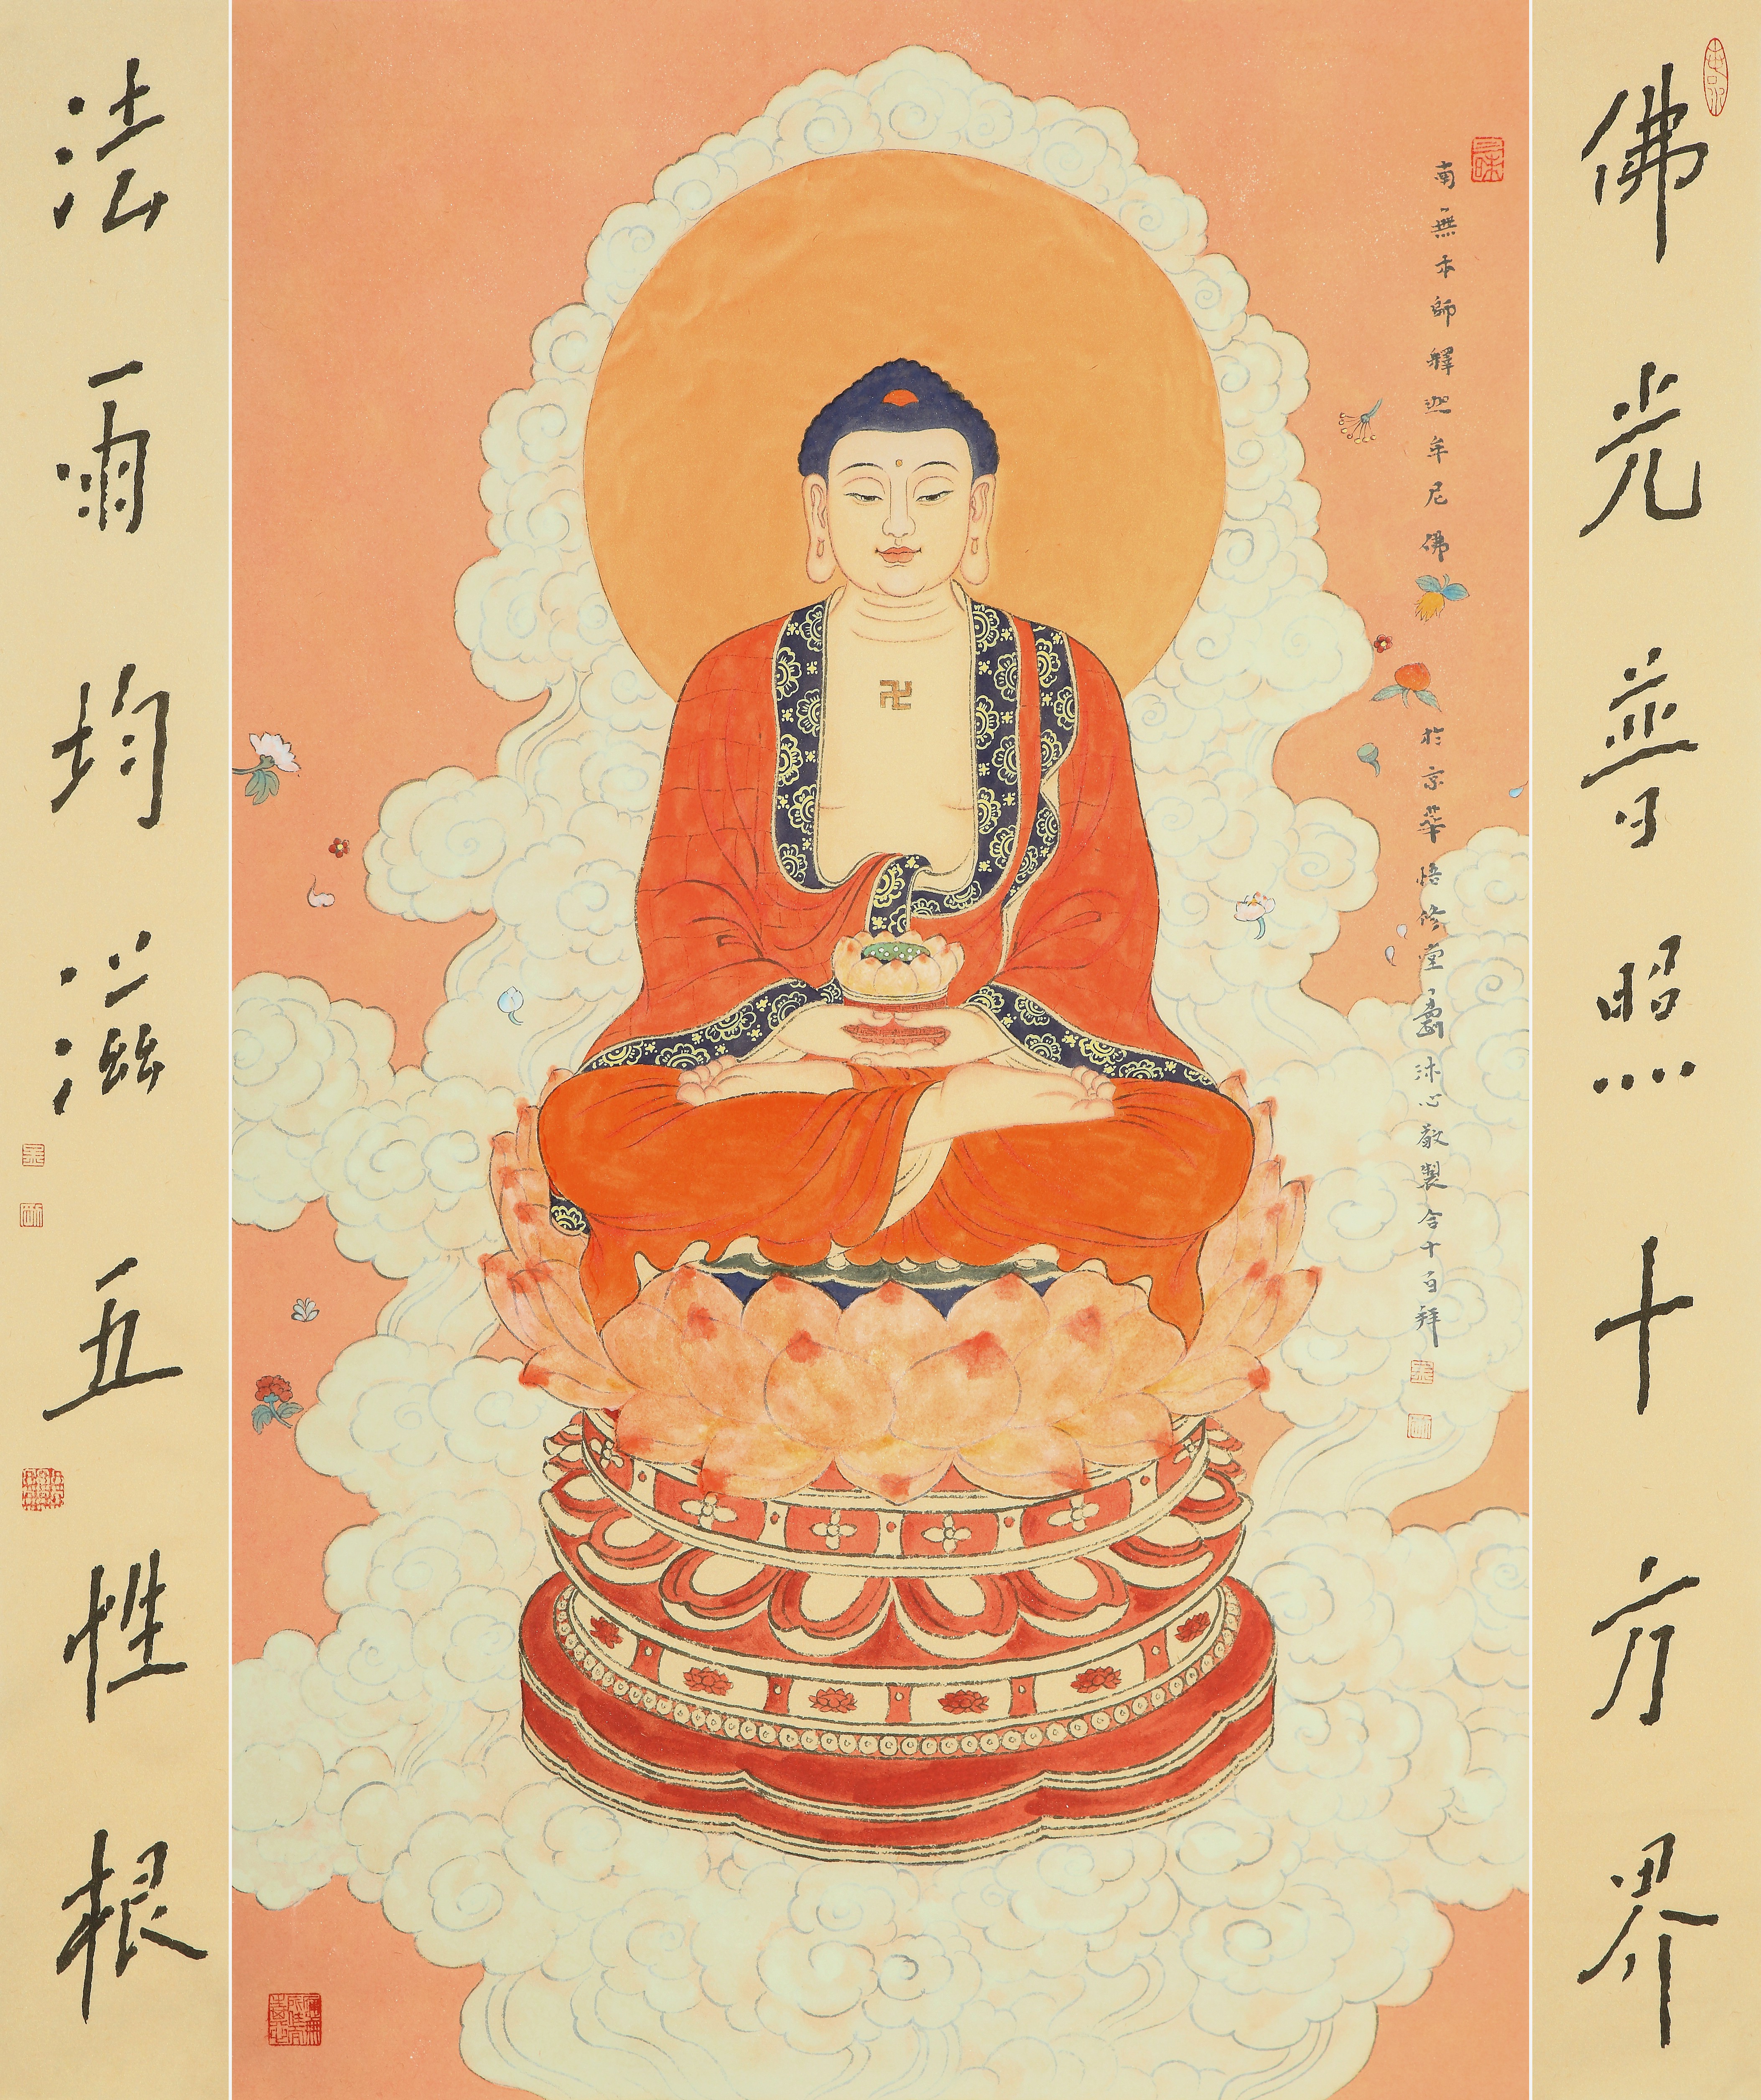 佛光普照十方界
三昧
南無本師釋迦牟尼佛
於京華悟修堂沐心敬製合十百拜
法雨均滋五性根